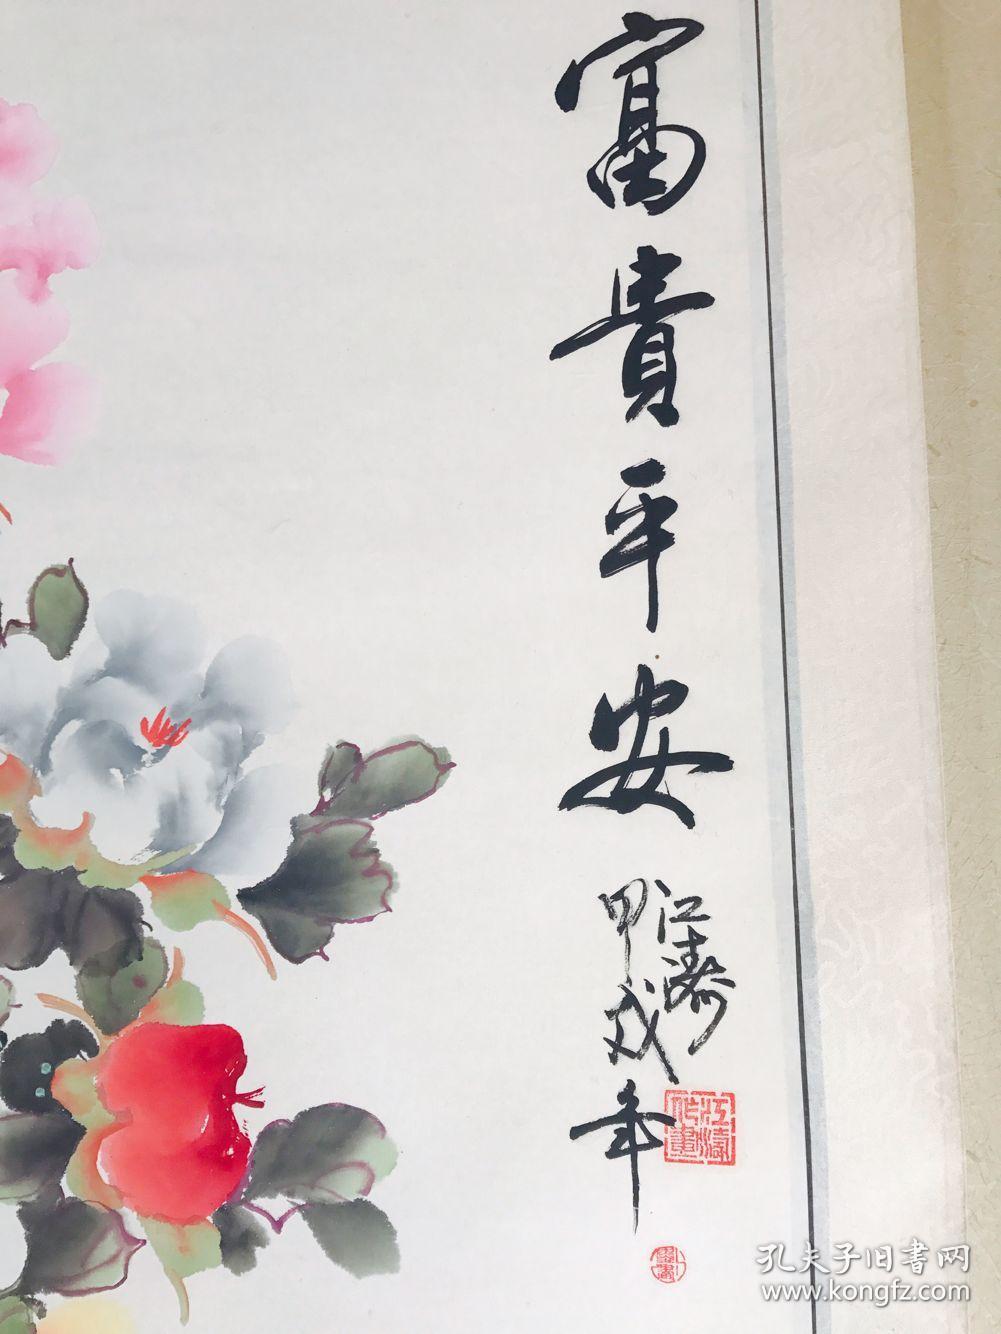 富貴平安
江濤
甲戌年
江濤作畫
孔夫子旧書网
www.kongfz.com